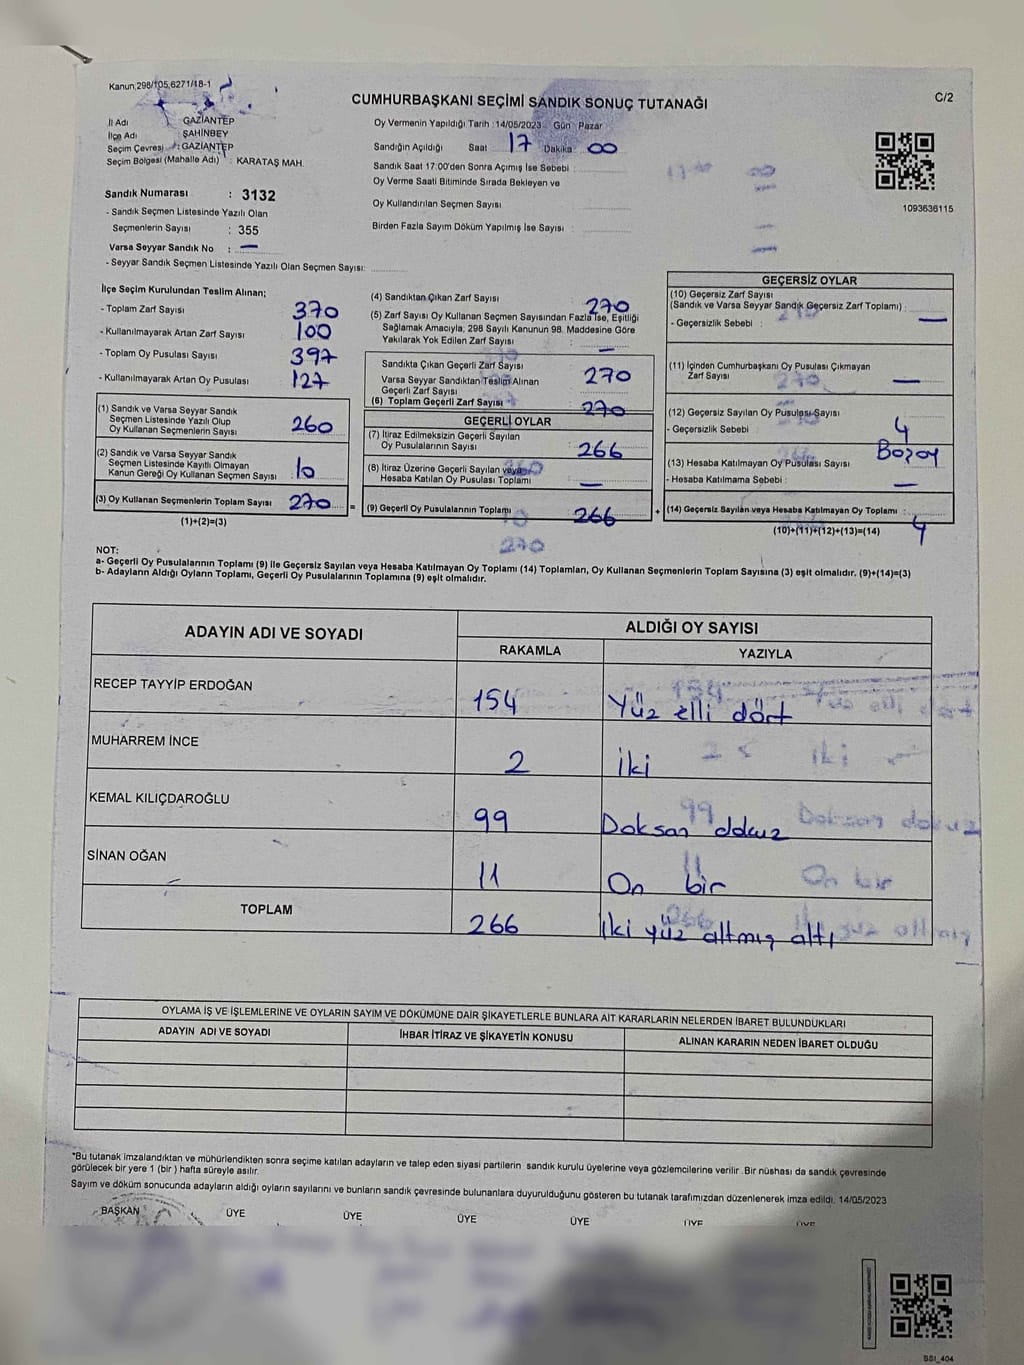 Kanun,298/105,6271/18-1
CUMHURBAŞKANI SEÇİMİ SANDIK SONUÇ TUTANAĞI
C/2
İl Adı GAZİANTEP
İlçe Adı ŞAHİNBEY
Seçim Çevresi : GAZİANTEP
Seçim Bölgesi (Mahalle Adı) : KARATAŞ MAH.
Sandık Numarası : 3132
- Sandık Seçmen Listesinde Yazılı Olan
Seçmenlerin Sayısı : 355
Varsa Seyyar Sandık No : —
- Seyyar Sandık Seçmen Listesinde Yazılı Olan Seçmen Sayısı:
Oy Vermenin Yapıldığı Tarih : 14/05/2023 Gün Pazar
Sandığın Açıldığı Saat 17 Dakika 00
Sandık Saat 17:00'den Sonra Açımış İse Sebebi :
Oy Verme Saati Bitiminde Sırada Bekleyen ve
Oy Kullandırılan Seçmen Sayısı
Birden Fazla Sayım Döküm Yapılmış İse Sayısı :
1093636115
İlçe Seçim Kurulundan Teslim Alınan;
- Toplam Zarf Sayısı 370
- Kullanılmayarak Artan Zarf Sayısı 100
- Toplam Oy Pusulası Sayısı 397
- Kullanılmayarak Artan Oy Pusulası 127
(1) Sandık ve Varsa Seyyar Sandık
Seçmen Listesinde Yazılı Olup
Oy Kullanan Seçmenlerin Sayısı 260
(2) Sandık ve Varsa Seyyar Sandık
Seçmen Listesinde Kayıtlı Olmayan
Kanun Gereği Oy Kullanan Seçmen Sayısı 10
(3) Oy Kullanan Seçmenlerin Toplam Sayısı 270 =
(1)+(2)=(3)
(4) Sandıktan Çıkan Zarf Sayısı 270
(5) Zarf Sayısı Oy Kullanan Seçmen Sayısından Fazla İse, Eşitliği
Sağlamak Amacıyla, 298 Sayılı Kanunun 98. Maddesine Göre
Yakılarak Yok Edilen Zarf Sayısı : —
Sandıkta Çıkan Geçerli Zarf Sayısı 270
Varsa Seyyar Sandıktan Teslim Alınan
Geçerli Zarf Sayısı
(6) Toplam Geçerli Zarf Sayısı 270
GEÇERLİ OYLAR
(7) İtiraz Edilmeksizin Geçerli Sayılan
Oy Pusulalarının Sayısı 266
(8) İtiraz Üzerine Geçerli Sayılan veya
Hesaba Katılan Oy Pusulası Toplamı —
(9) Geçerli Oy Pusulalarının Toplamı 266 +
GEÇERSİZ OYLAR
(10) Geçersiz Zarf Sayısı
(Sandık ve Varsa Seyyar Sandık Geçersiz Zarf Toplamı) : —
- Geçersizlik Sebebi :
(11) İçinden Cumhurbaşkanı Oy Pusulası Çıkmayan
Zarf Sayısı —
(12) Geçersiz Sayılan Oy Pusulası Sayısı 4
- Geçersizlik Sebebi
(13) Hesaba Katılmayan Oy Pusulası Sayısı —
- Hesaba Katılmama Sebebi :
(14) Geçersiz Sayılan veya Hesaba Katılmayan Oy Toplamı 4
(10)+(11)+(12)+(13)=(14)
NOT:
a- Geçerli Oy Pusulalarının Toplamı (9) ile Geçersiz Sayılan veya Hesaba Katılmayan Oy Toplamı (14) Toplamları, Oy Kullanan Seçmenlerin Toplam Sayısına (3) eşit olmalıdır. (9)+(14)=(3)
b- Adayların Aldığı Oyların Toplamı, Geçerli Oy Pusulalarının Toplamına (9) eşit olmalıdır.
ADAYIN ADI VE SOYADI
ALDIĞI OY SAYISI
RAKAMLA
YAZIYLA
RECEP TAYYİP ERDOĞAN 154 Yüz elli dört
MUHARREM İNCE 2 İki
KEMAL KILIÇDAROĞLU 99 Doksan ddkuz
SİNAN OĞAN 11 On bir
TOPLAM 266 İki yüz altmış altı
OYLAMA İŞ VE İŞLEMLERİNE VE OYLARIN SAYIM VE DÖKÜMÜNE DAİR ŞİKAYETLERLE BUNLARA AİT KARARLARIN NELERDEN İBARET BULUNDUKLARI
ADAYIN ADI VE SOYADI
İHBAR İTİRAZ VE ŞİKAYETİN KONUSU
ALINAN KARARIN NEDEN İBARET OLDUĞU
*Bu tutanak imzalandıktan ve mühürlendikten sonra seçime katılan adayların ve talep eden siyasi partilerin sandık kurulu üyelerine veya gözlemcilerine verilir. Bir nüshası da sandık çevresinde
görülecek bir yere 1 (bir ) hafta süreyle asılır.
Sayım ve döküm sonucunda adayların aldığı oyların sayılarını ve bunların sandık çevresinde bulunanlara duyurulduğunu gösteren bu tutanak tarafımızdan düzenlenerek imza edildi. 14/05/2023
BAŞKAN ÜYE ÜYE ÜYE ÜYE ÜYE ÜYE
SSI_404